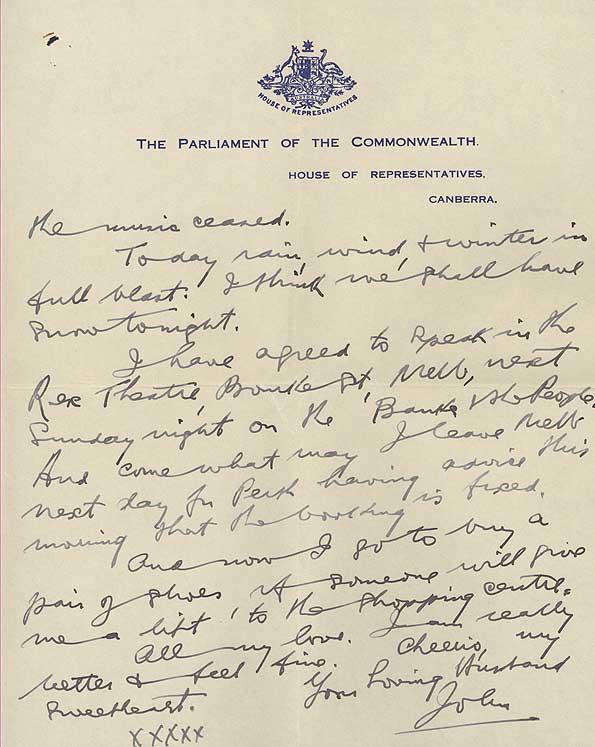 HOUSE OF REPRESENTATIVES
THE PARLIAMENT OF THE COMMONWEALTH.
HOUSE OF REPRESENTATIVES,
CANBERRA.
the music ceased.
Today rain, wind, & winter in
full blast. I think we shall have
snow tonight.
I have agreed to speak in the
Rex Theatre, Bourke St, Melb, next
Sunday night on the "Banks v the People.
And come what may I leave Melb
next day for Perth having advice this
morning that the booking is fixed.
And now I go to buy a
pair of shoes if someone will give
me a lift to the shopping centre.
All my love. I am really
better & feel fine. Cheerio, my
sweetheart. Your Loving Husband
John
XXXXX